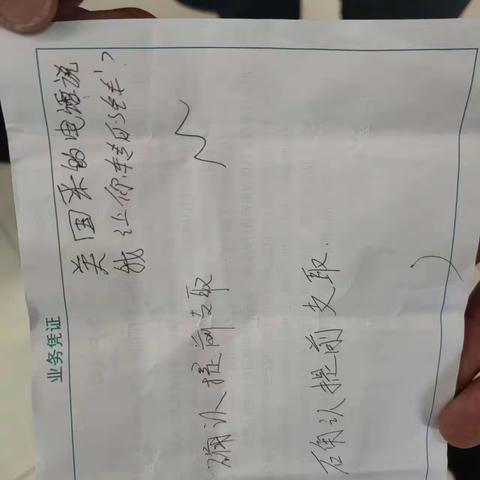 业务凭证
美国来的电话说
让你转
确认提前支取
确认提前支取.